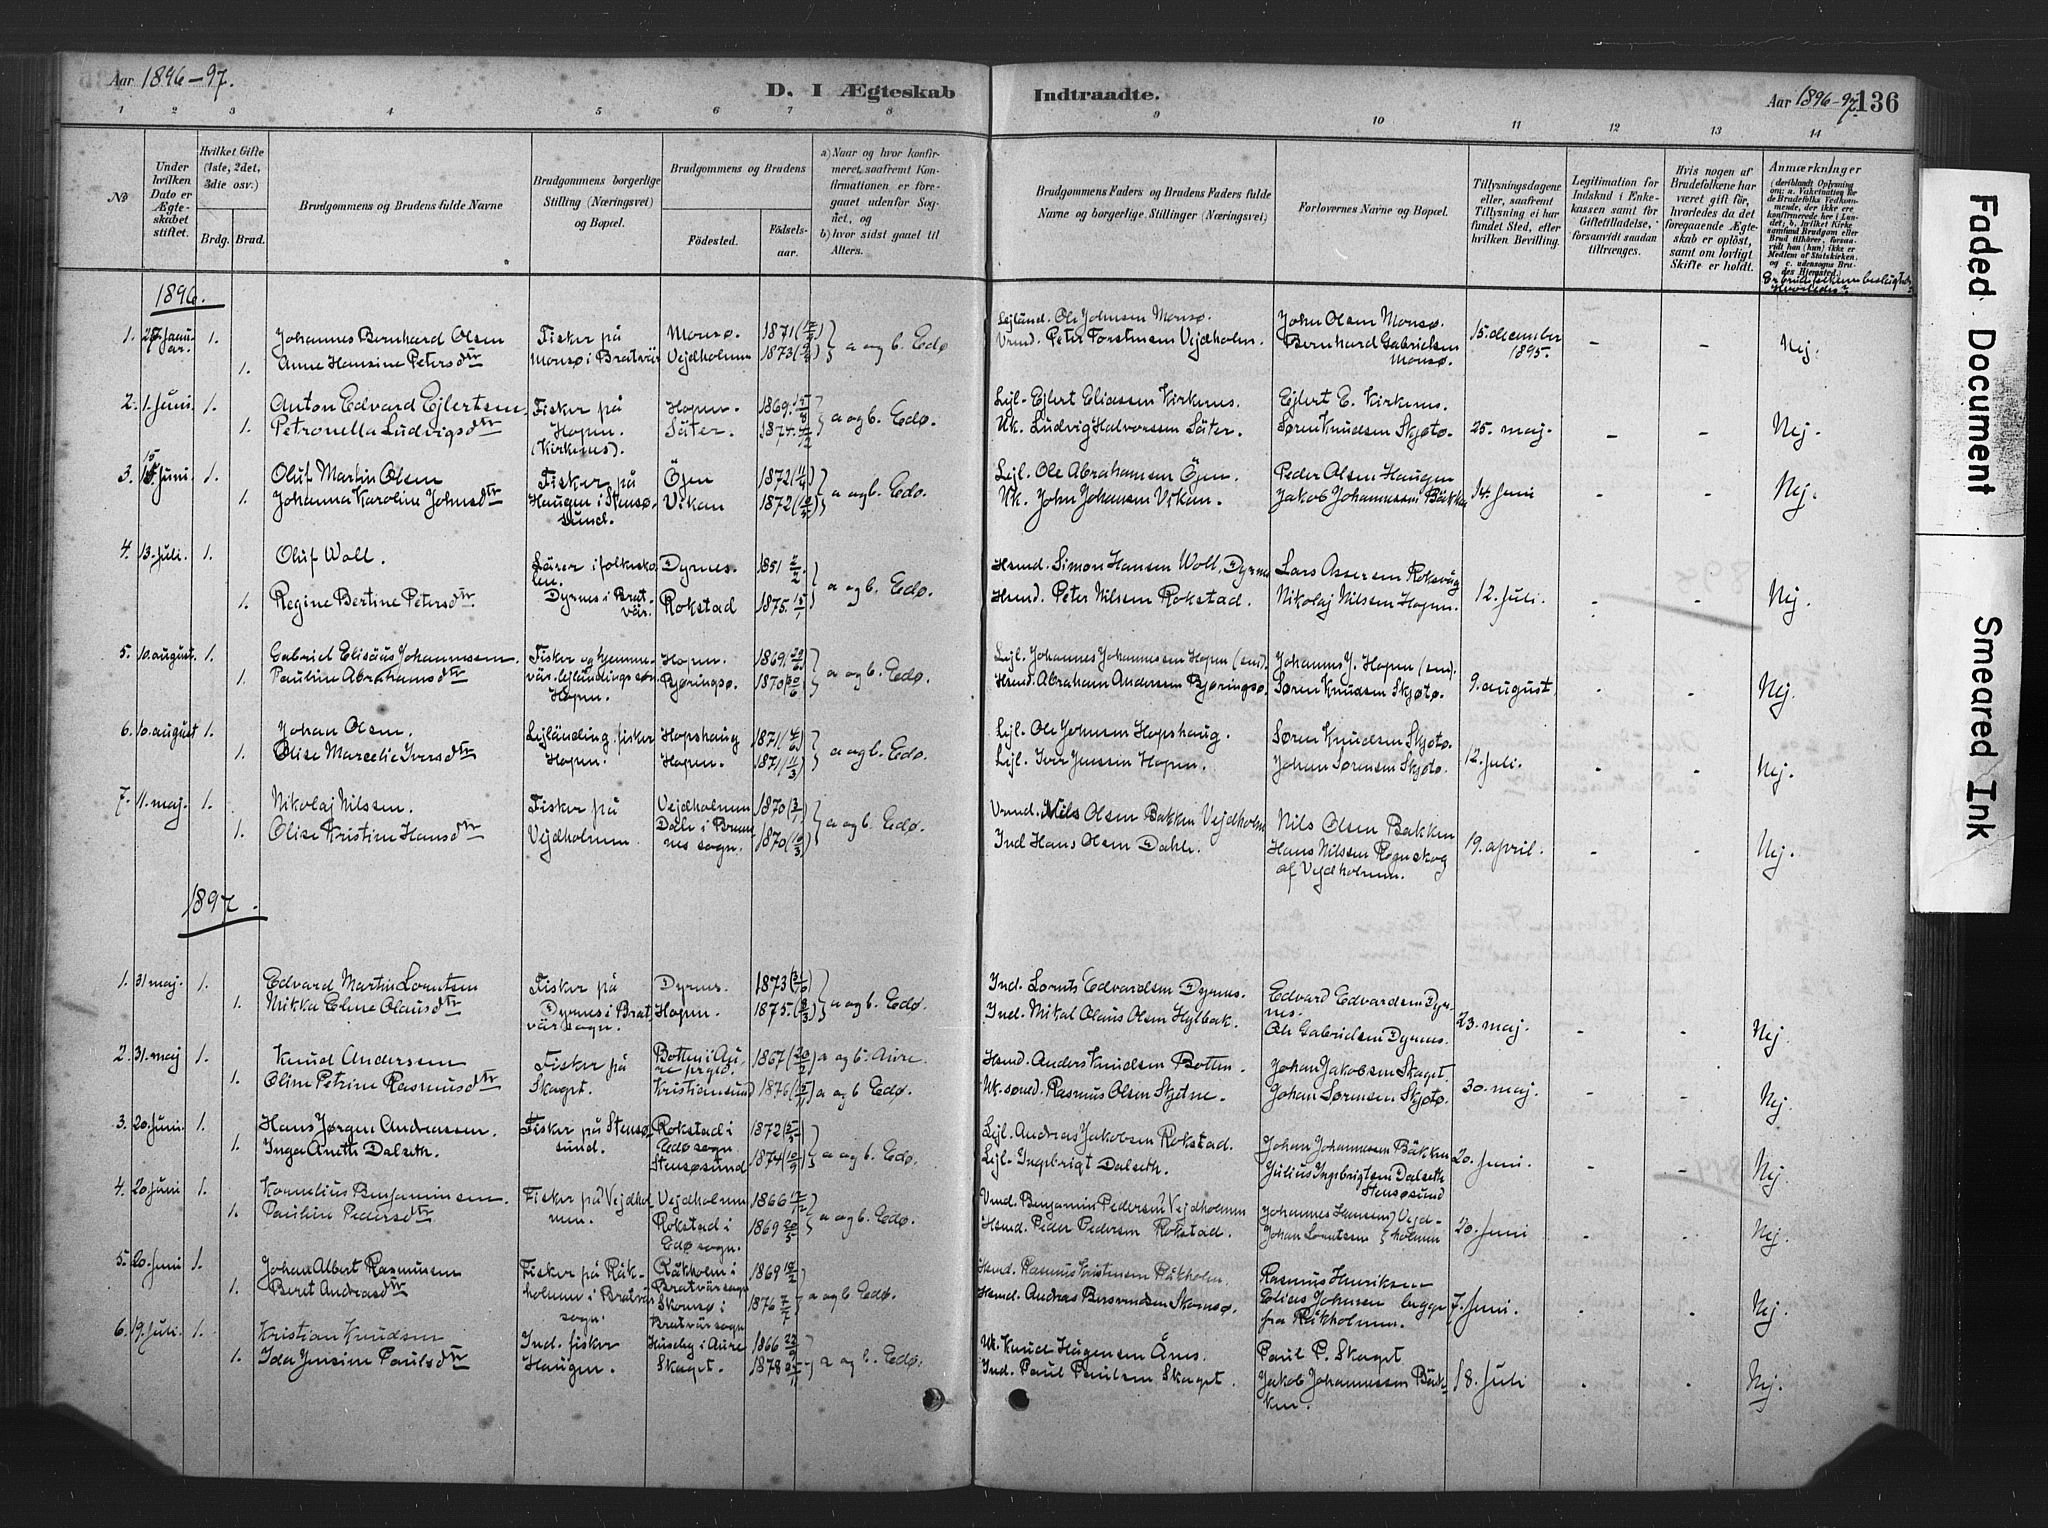 Aar 1896–97.
D. I Ægteskab Indtraadte.
Aar 1896–97. 136
1 2 3 4 5 6 7 8 9 10 11 12 13 14
No
Under hvilken Dato er Ægteskabet stiftet.
Hvilket Gifte (1ste, 2det, 3die osv.)
Brdg. Brud.
Brudgommens og Brudens fulde Navne
Brudgommens borgerlige Stilling (Næringsvei) og Bopæl.
Brudgommens og Brudens
Fødested.
Fødselsaar.
a) Naar og hvor konfirmeret, saafremt Konfirmationen er foregaaet udenfor Sognet, og
b) hvor sidst gaaet til Alters.
Brudgommens Faders og Brudens Faders fulde Navne og borgerlige Stillinger (Næringsvei)
Forlovernes Navne og Bopæl.
Tillysningsdagene eller, saafremt Tillysning ei har fundet Sted, efter hvilken Bevilling.
Legitimation for Indskud i Enkekassen samt for Giftetilladelse, forsaavidt saadan tiltrænges.
Hvis nogen af Brudefolkene har været gift før, hvorledes da det foregaaende Ægteskab er opløst, samt om lovligt Skifte er holdt.
Anmærkninger
(deriblandt Oplysning om: a. Vakcination for de Brudefolks Vedkommende, der ikke ere konfirmerede her i Landet; b. hvilket Kirkesamfund Brudgom eller Brud tilhører, forsaavidt han (hun) ikke er Medlem af Statskirken, og c. udensogns Brudes Hjemsted.)
Er brudefolkene beslægtede? Hvorledes?
1896.
1. 27 Januar. 1. Johannes Bernhard Olsen Fisker på Monsø. 1871
1. Anne Hansine Petersdtr Monsø i Bratvär Vejdholmen 1873 a og b. Edø
Lejländ. Ole Johnsen Monsø. John Olsen Monsø. 15 december
Vrmd. Peter Torstensen Vejdholm. Bernhard Gabrielsen Monsø. 1895. - - Nej.
2. 1. Juni. 1. Anton Edvard Ejlertsen, Fisker på Hopen. 1869. 15/8
1. Petronella Ludvigsdtr Hopen. Säter. 1874. a og b. Edø.
(Kirkenes).
Lejl. Ejlert Eliassen Kirkenes. Ejlert E. Kirkenes.
Uk. Ludvig Halvorsen Säter. Søren Knudsen Skjøtø. 25. maj. - - Nej.
3. 15 Juni. 1. Oluf Martin Olsen Fisker på Öjen 1872 (11/4)
1. Johanna Karoline Johnsdtr Haugen i Stensø- Vikan 1872 a og b. Edø.
sund.
Lejl. Ole Abrahamsen Öjen. Peder Olsen Haugen
Uk. John Johansen Vikan. Jakob Johannessen Bäkken 14. Juni - - Nej.
4. 13. Juli. 1. Oluf Woll. Lärer i folkeskolen. Dyrnes. 1851 2/2
1. Regine Bertine Petersdtr Dyrnes i Bratvär. Rokstad 1875. 15/1 a og b. Edø.
Hsmd. Simon Hansen Woll, Dyrnes Lars Assersen Roksvåg
Hsmd. Peter Nilssen Rokstad. Nikolaj Nilssen Hopen. 12. Juli. - - Nej.
5. 10. august. 1. Gabriel Elisäus Johannessen. Fisker og hjemmevär. lejländingssøn Hopen. 1869. 20/6
1. Pauline Abrahamsdtr Hopen. Bjøringsø. 1870 a og b. Edø.
Lejl. Johannes Johannessen Hopen (sen). Johannes J. Hopen (sen).
Hsmd. Abraham Andersen Bjøringsø. Søren Knudsen Skjøtø. 9. august. - - Nej.
6. 10. august 1. Johan Olsen. Lejländing, fisker Hopshaug 1871 (4/6)
1. Olise Marcelie Iversdtr Hopen. Hopen. 1871 (11/3) a og b. Edø.
Lejl. Ole Johnsen Hopshaug. Søren Knudsen Skjøtø.
Lejl. Iver Jenssen Hopen. Johan Sørensen Skjøtø. 12. Juli. - - Nej.
7. 11. maj. 1. Nikolaj Nilssen. Fisker på Vejdholmen 1870 (3/1)
1. Olise Kristine Hansdtr Vejdholmen. Dale i Bremnes sogn. 1870 (10/3) a og b. Edø.
Vrmd. Nils Olsen Bakken Vejdholm Nils Olsen Bakken
Ind Hans Olsen Dahle. Hans Nilssen Rønskog af Vejdholmen. 19. april. - - Nej.
1897.
1. 31 maj. 1. Edvard Martin Lorntsen Fisker på Dyrnes. 1873
1. Mikka Eline Olausdtr Dyrnes i Bratvär sogn. Hopen. 1875. (8/3) a og b. Edø.
Ind. Lornts Edvardsen Dyrnes. Edvard Edvardsen Dyrnes.
Ind. Mikal Olaus Olsen Hylbak. Ole Gabrielsen Dyrnes. 23. maj. - - Nej
2. 31. maj 1. Knud Andersen Fisker på Botten i Aure prgd. 1867 (20/2) a og b. Aure.
1. Oline Petrine Rasmusdtr Skaget. Kristiansund 1876 a og b Edø.
Hsmd. Anders Knudsen Botten. Johan Jakobsen Skaget.
Uk. smd. Rasmus Olsen Skjetne. Johan Sørensen Skjøtø. 30. maj. - - Nej.
3. 20. Juni. 1. Hans Jørgen Andreassen. Fisker på Stensø- Rokstad i Edø sogn 1872
1. Inga Aneth Dalseth. sund. Stensøsund 1874 (10/9) a og b. Edø.
Lejl. Andreas Jakobsen Rokstad. Johan Johannessen Bäkken
Lejl. Ingebrigt Dalseth. Julius Ingebrigtsen Dalseth Stensøsund 20. Juni. - - Nej
4. 20. Juni 1. Kornelius Benjaminsen. Fisker på Vejdhol- Vejdholmen 1866
1. Pauline Pedersdtr men. Rokstad i Edø sogn. 1869 20/5 a og b. Edø.
Vrmd. Benjamin Pedersen Vejdholmen Johannes Hanssen } Vejd-
Hsmd. Peder Pedersen Rokstad. Johan Lorntsen } holmen 20. Juni - - Nej
5. 20. Juni 1. Johan Albert Rasmussen Fisker på Råk- Råkholm i Bratvär sogn 1869
1. Beret Andreasdtr holmen i Bratvär sogn. Skomsø i Bratvär sogn 1876 7/7 a og b. Edø.
Hsmd. Rasmus Kristensen Råkholm. Rasmus Henriksen
Hsmd. Andreas Bersvendsen Skomsø. Elias Johnsen begge fra Råkholmen. 7. Juni. - - Nej
6. 19. Juli. 1. Kristian Knudsen Ind. fisker Husby i Aure 1866
1. Ida Jensine Paulsdtr Haugen. Skaget. 1878 a og b. Edø.
Uk. Knud Hågensen Ånes. Paul P. Skaget
Ind. Paul Paulsen Skaget. Jakob Johannessen Bäkken. 18. Juli - - Nej.
Faded Document
Smeared Ink